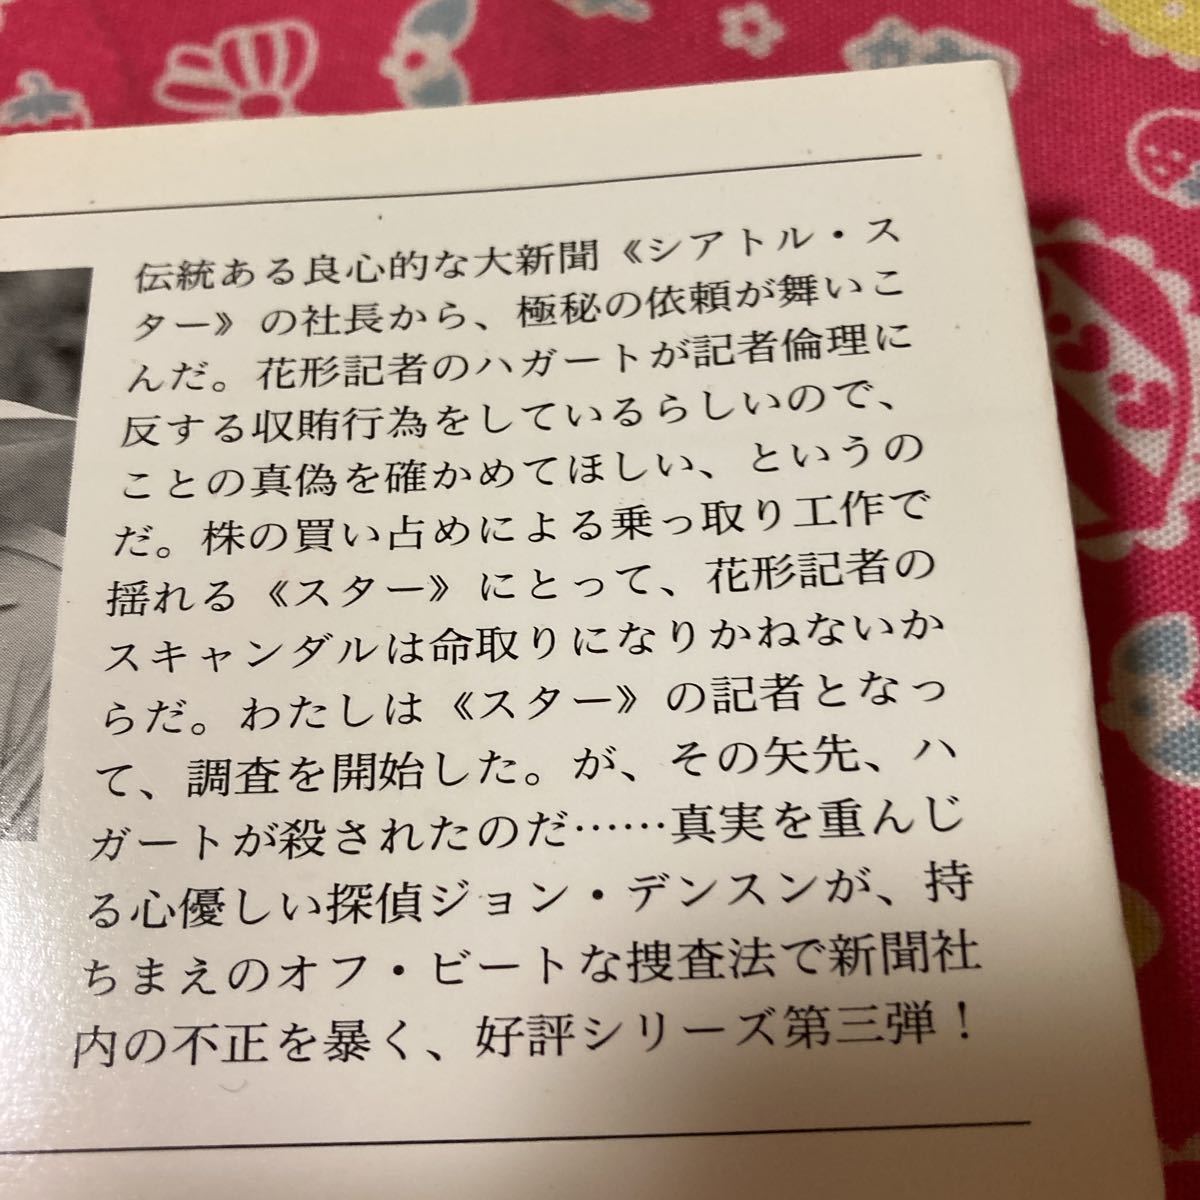 伝統ある良心的な大新聞《シアトル・ス
ター》の社長から、極秘の依頼が舞いこ
んだ。花形記者のハガートが記者倫理に
反する収賄行為をしているらしいので、
ことの真偽を確かめてほしい、というの
だ。株の買い占めによる乗っ取り工作で
揺れる《スター》にとって、花形記者の
スキャンダルは命取りになりかねないか
らだ。わたしは《スター》の記者となっ
て、調査を開始した。が、その矢先、ハ
ガートが殺されたのだ……真実を重んじ
る心優しい探偵ジョン・デンスンが、持
ちまえのオフ・ビートな捜査法で新聞社
内の不正を暴く、好評シリーズ第三弾！